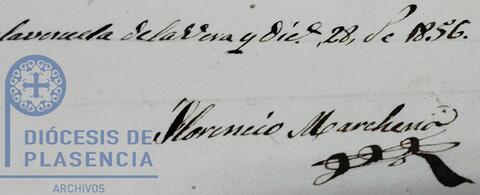 de la Vera y Dic.e 28, de 1856.
Florencio Marchena
DIÓCESIS DE
PLASENCIA
ARCHIVOS